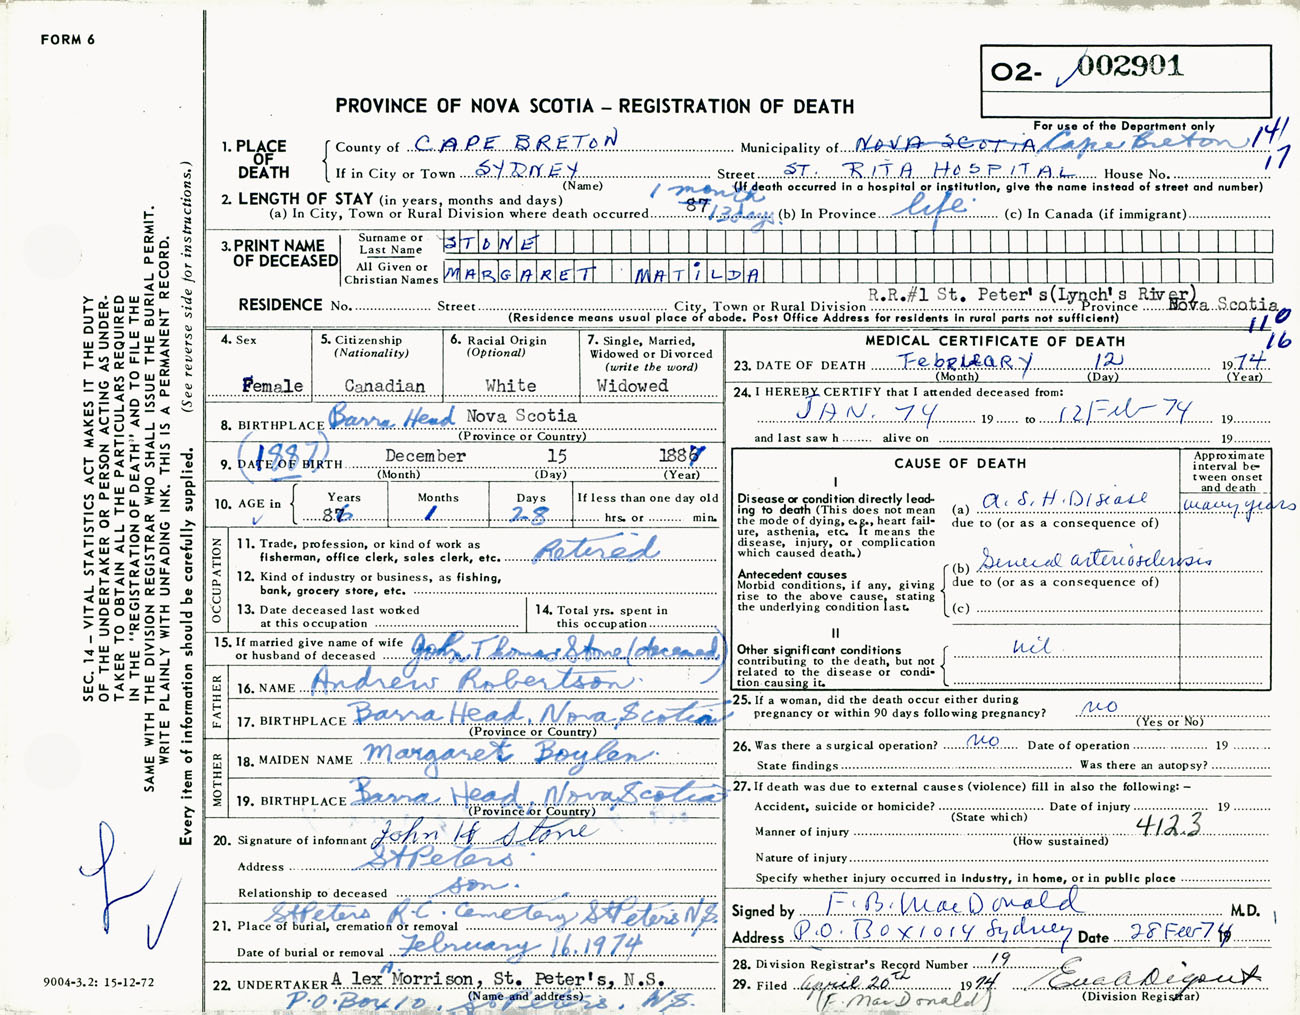 FORM 6
O2- 002901
PROVINCE OF NOVA SCOTIA – REGISTRATION OF DEATH
For use of the Department only
141
17
1. PLACE OF DEATH
County of CAPE BRETON Municipality of NOVA SCOTIA Cape Breton
If in City or Town SYDNEY Street ST. RITA HOSPITAL House No.
(Name) (If death occurred in a hospital or institution, give the name instead of street and number)
2. LENGTH OF STAY (in years, months and days) 1 month
(a) In City, Town or Rural Division where death occurred 87 13 days. (b) In Province life (c) In Canada (if immigrant)
3. PRINT NAME OF DECEASED
Surname or Last Name STONE
All Given or Christian Names MARGARET MATILDA
RESIDENCE No. Street City, Town or Rural Division R.R.#1 St. Peter's(Lynch's River) Province Nova Scotia
(Residence means usual place of abode. Post Office Address for residents in rural parts not sufficient)
110
16
4. Sex Female
5. Citizenship (Nationality) Canadian
6. Racial Origin (Optional) White
7. Single, Married, Widowed or Divorced (write the word) Widowed
8. BIRTHPLACE Barra Head Nova Scotia
(Province or Country)
(1887)
9. DATE OF BIRTH December 15 1887
(Month) (Day) (Year)
10. AGE in Years 86 Months 1 Days 28 If less than one day old hrs. or min.
OCCUPATION
11. Trade, profession, or kind of work as fisherman, office clerk, sales clerk, etc. Retired
12. Kind of industry or business, as fishing, bank, grocery store, etc.
13. Date deceased last worked at this occupation
14. Total yrs. spent in this occupation
15. If married give name of wife or husband of deceased John Thomas Stone (deceased)
FATHER
16. NAME Andrew Robertson
17. BIRTHPLACE Barra Head, Nova Scotia
(Province or Country)
MOTHER
18. MAIDEN NAME Margaret Boylen
19. BIRTHPLACE Barra Head, Nova Scotia
(Province or Country)
20. Signature of informant John H Stone
Address St Peters
Relationship to deceased son.
St Peters R-C. Cemetery St Peters N.S.
21. Place of burial, cremation or removal
Date of burial or removal February 16, 1974
22. UNDERTAKER A lex A Morrison, St. Peter's, N.S.
(Name and address)
P.O. Box 10, St. Peters, N.S.
MEDICAL CERTIFICATE OF DEATH
23. DATE OF DEATH FebRUARY 12 1974
(Month) (Day) (Year)
24. I HEREBY CERTIFY that I attended deceased from:
JAN. 74 19 to 12 Feb 74 19
and last saw h alive on 19
CAUSE OF DEATH
Approximate interval between onset and death
I
Disease or condition directly leading to death (This does not mean the mode of dying, e.g., heart failure, asthenia, etc. It means the disease, injury, or complication which caused death.)
(a) A. S. H. Disease many years
due to (or as a consequence of)
Antecedent causes
Morbid conditions, if any, giving rise to the above cause, stating the underlying condition last.
(b) General arteriosclerosis
due to (or as a consequence of)
(c)
II
Other significant conditions contributing to the death, but not related to the disease or condition causing it.
nil
25. If a woman, did the death occur either during pregnancy or within 90 days following pregnancy? no
(Yes or No)
26. Was there a surgical operation? no Date of operation 19
State findings Was there an autopsy?
27. If death was due to external causes (violence) fill in also the following: –
Accident, suicide or homicide? Date of injury 19
(State which)
Manner of injury 412.3
(How sustained)
Nature of injury
Specify whether injury occurred in Industry, in home, or in public place
Signed by F. B. MacDonald M.D.
Address P.O. BOX 1014 Sydney Date 28 Feb 74
28. Division Registrar's Record Number 19
29. Filed April 20th 1974
(Division Registrar)
(F. MacDonald)
SEC. 14 – VITAL STATISTICS ACT MAKES IT THE DUTY
OF THE UNDERTAKER OR PERSON ACTING AS UNDER-
TAKER TO OBTAIN ALL THE PARTICULARS REQUIRED
IN THE "REGISTRATION OF DEATH" AND TO FILE THE
SAME WITH THE DIVISION REGISTRAR WHO SHALL ISSUE THE BURIAL PERMIT.
WRITE PLAINLY WITH UNFADING INK. THIS IS A PERMANENT RECORD.
Every item of information should be carefully supplied. (See reverse side for instructions.)
9004-3.2: 15-12-72